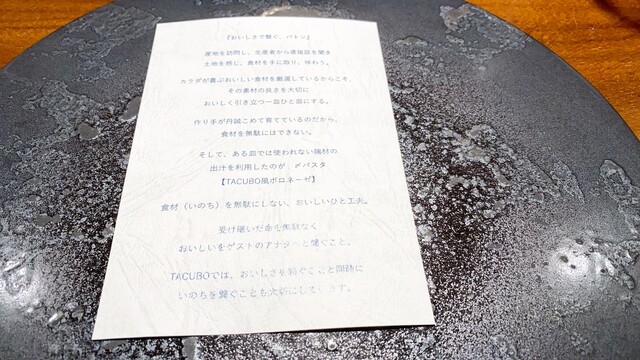 『おいしさで繋ぐ、バトン』
産地を訪問し、生産者から直接話を聞き
土地を感じ、食材を手に取り、味わう。
カラダが喜ぶおいしい食材を厳選しているからこそ、
その素材の良さを大切に
おいしく引き立つ一皿ひと皿にする。
作り手が丹誠こめて育てているのだから、
食材を無駄にはできない。
そして、ある皿では使われない端材の
出汁を利用したのが、〆パスタ
【TACUBO風ボロネーゼ】
食材（いのち）を無駄にしない、おいしいひと工夫。
受け継いだ命を無駄なく
おいしいをゲストのアナタへと繋ぐこと。
TACUBOでは、おいしさを紡ぐことと同時に
いのちを繋ぐことも大切にしています。